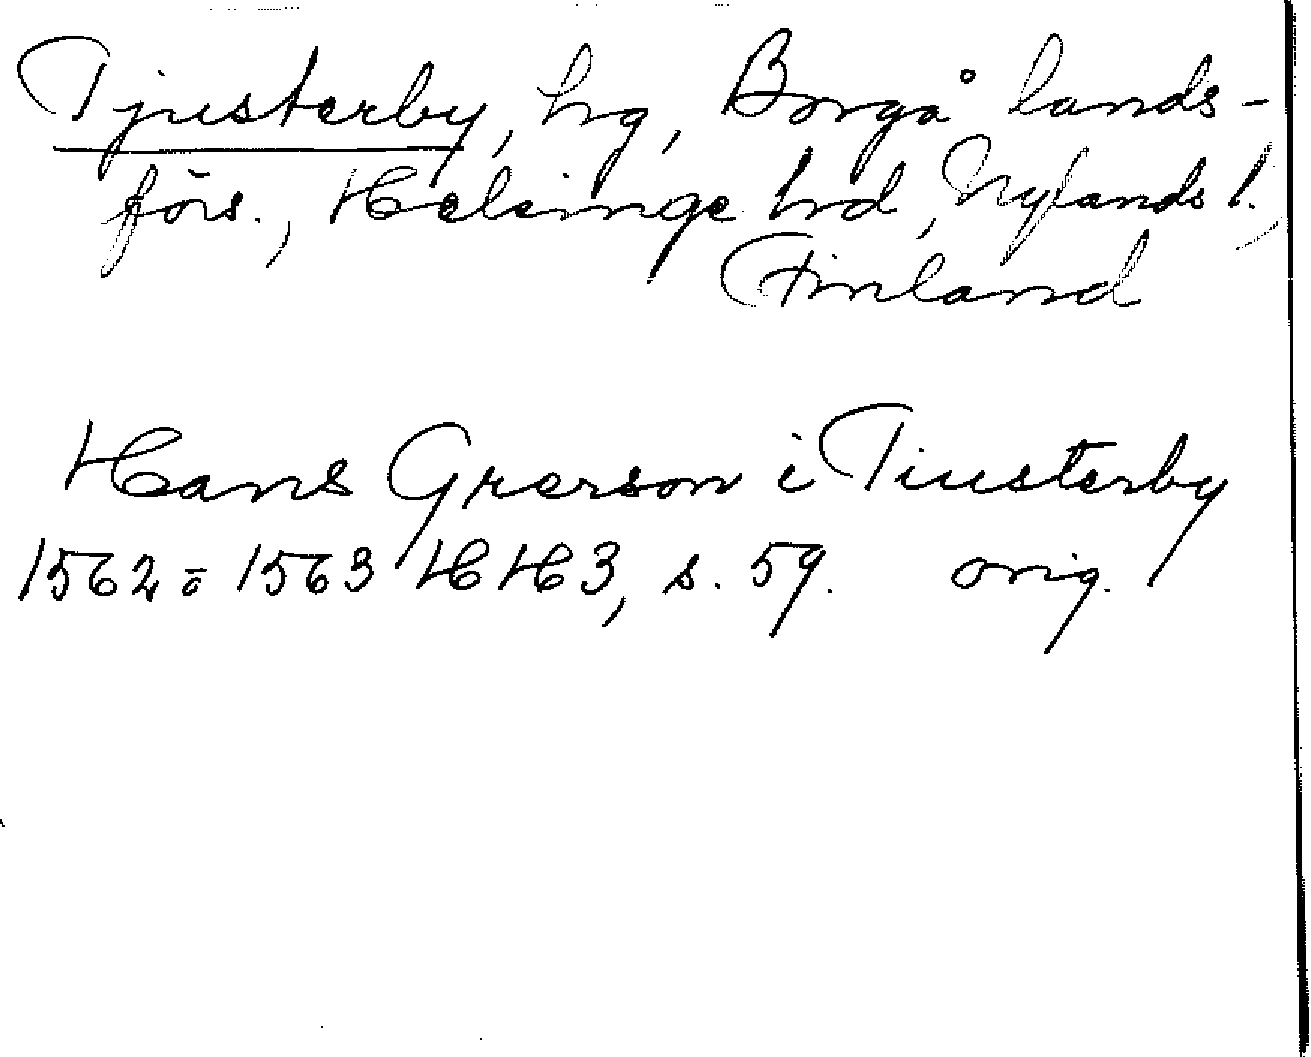 Tjusterby, hg, Borgå lands-
förs., Helsinge hrd, Nylands l.,
Finland
Hans Grerson i Tiusterby
1562 ō 1563 HH 3, s. 59. orig.